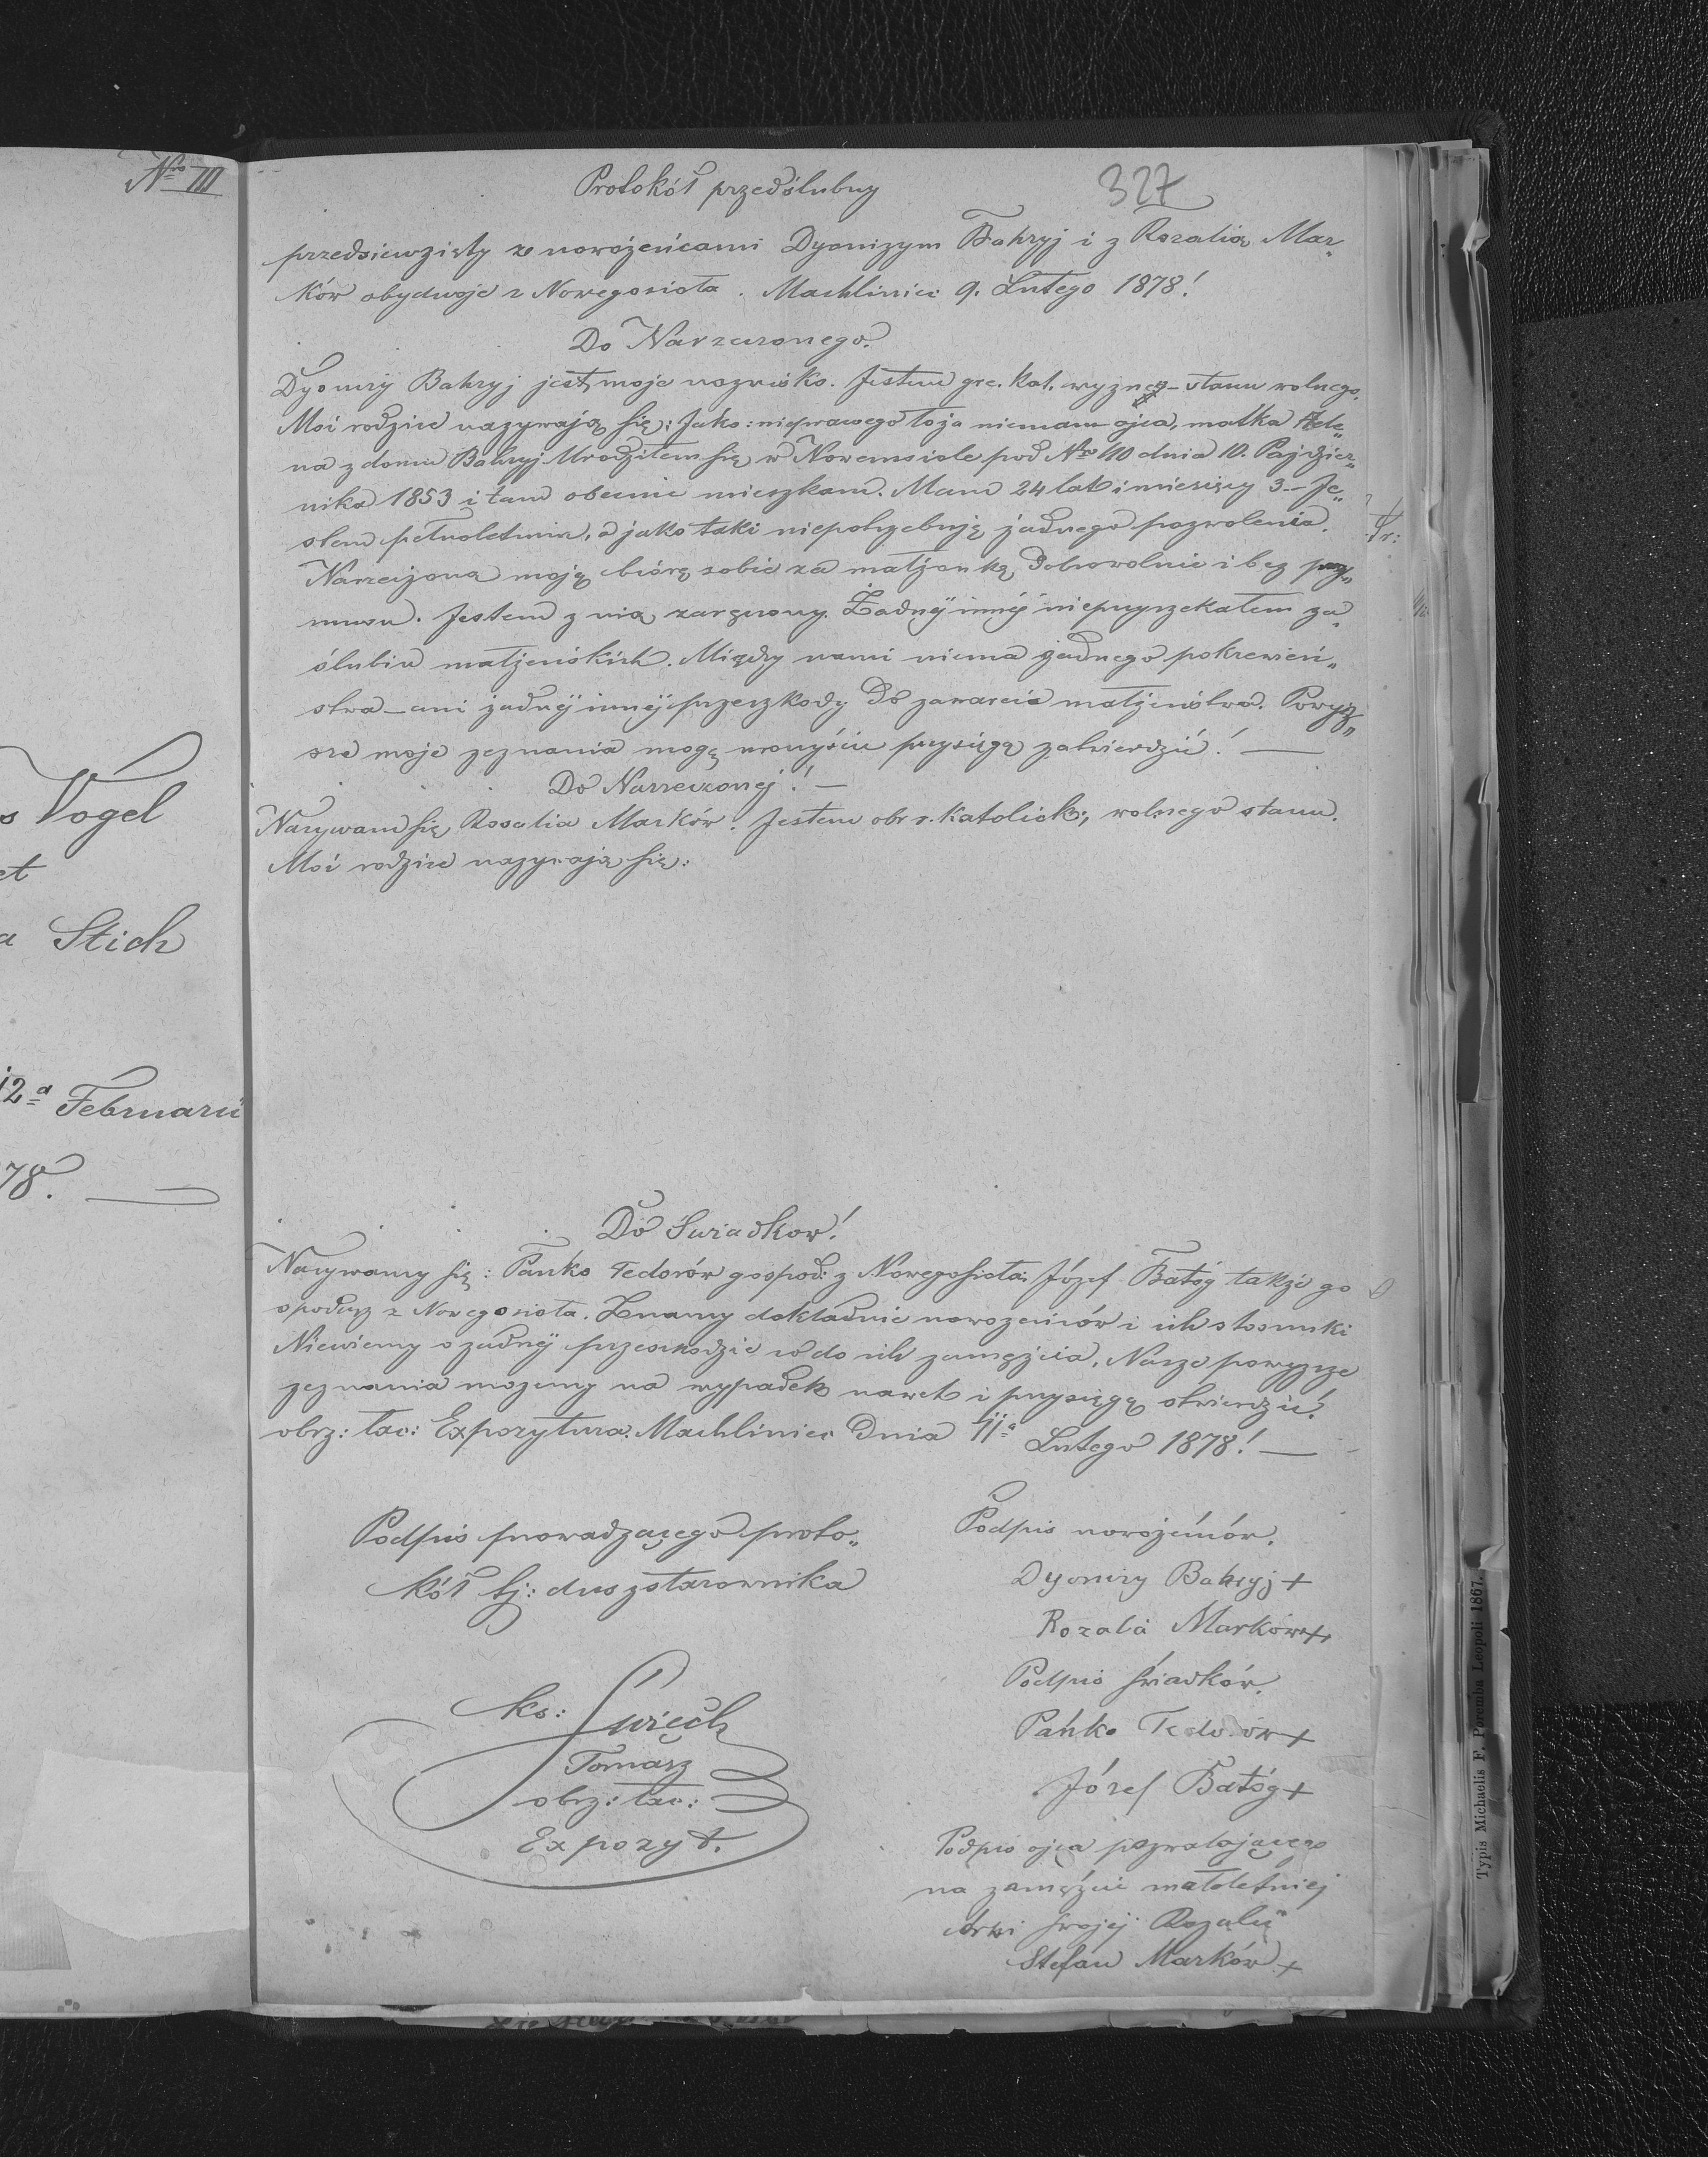 Nro III
s Vogel
et
a Stich
12a Februarii
78.
Protokół przedślubny
327
przedsiewzięty z nowożeńcami Dyonizym Bahryj i z Rozalią Mar„
ków obydwoje z Nowegosioła. Machliniec 9. Lutego 1878!
Do Narzeczonego.
Dyonizy Bahryj jest moje nazwisko. Jestem grc. kat. wyzneg – stanu wolnego.
Moi rodzice nazywają się: Jako: nieprawego łoża niemam ojca, matka Hele„
na z domu Bahryj Urodziłem się w Nowemsiole pod Nro 110 dnia 10. Pajdzier„
nika 1853 i tam obecnie mieszkam. Mam 24 lat i miesięcy 3. – Je„
stem pełnoletnim, a jako taki niepotrzebuję żadnego pozwolenia.
Narzeczoną moję biorę sobie za małżonkę dobrowolnie i bez przy„
musu. Jestem z nią zaręczony. Żadnej innej nieprzyrzekałem za„
ślubin małżeńskich. Między nami niema żadnego pokrewień„
stwa – ani żadnej innej przeszkody do zawarcia małżeństwa. Powyż„
sze moje zeznania mogę uroczyście przysięgą zatwierdzić! —
Do Narzeczonej! —
Nazywam się Rozalia Marków. Jestem obr. r. katolick:, wolnego stanu.
Moi rodzice nazywają się:
Do Świadkow!
Nazywamy się: Pańko Fedorów gospod: z Nowegosioła: Józef Batóg także go
spodarz z Nowegosioła. Znamy dokładnie nowożeńców i ich stosunki
Niewiemy o żadnej przeszkodzie co do ich zamęźcia. Nasze powyzsze
zeznania możemy na wypadek nawet i przysięgą stwierdzić!
obrz: łac: Expozytura. Machliniec Dnia 11a Lutego 1878! —
Podpis prowadzącego proto„
kół tj: duszstarownika
ks: Święch
Tomasz
obrz: łac:
Expozyt.
Podpis nowożeńców.
Dyonizy Bahryj +
Rozalia Marków +
Podpis świadków.
Pańko Fedorów +
Józef Batóg +
Podpis ojca pozwalającego
na zamężcie małoletniej
córki swojej Rozalii
Stefan Marków +
Typis Michaelis F. Poremba Leopoli 1867.